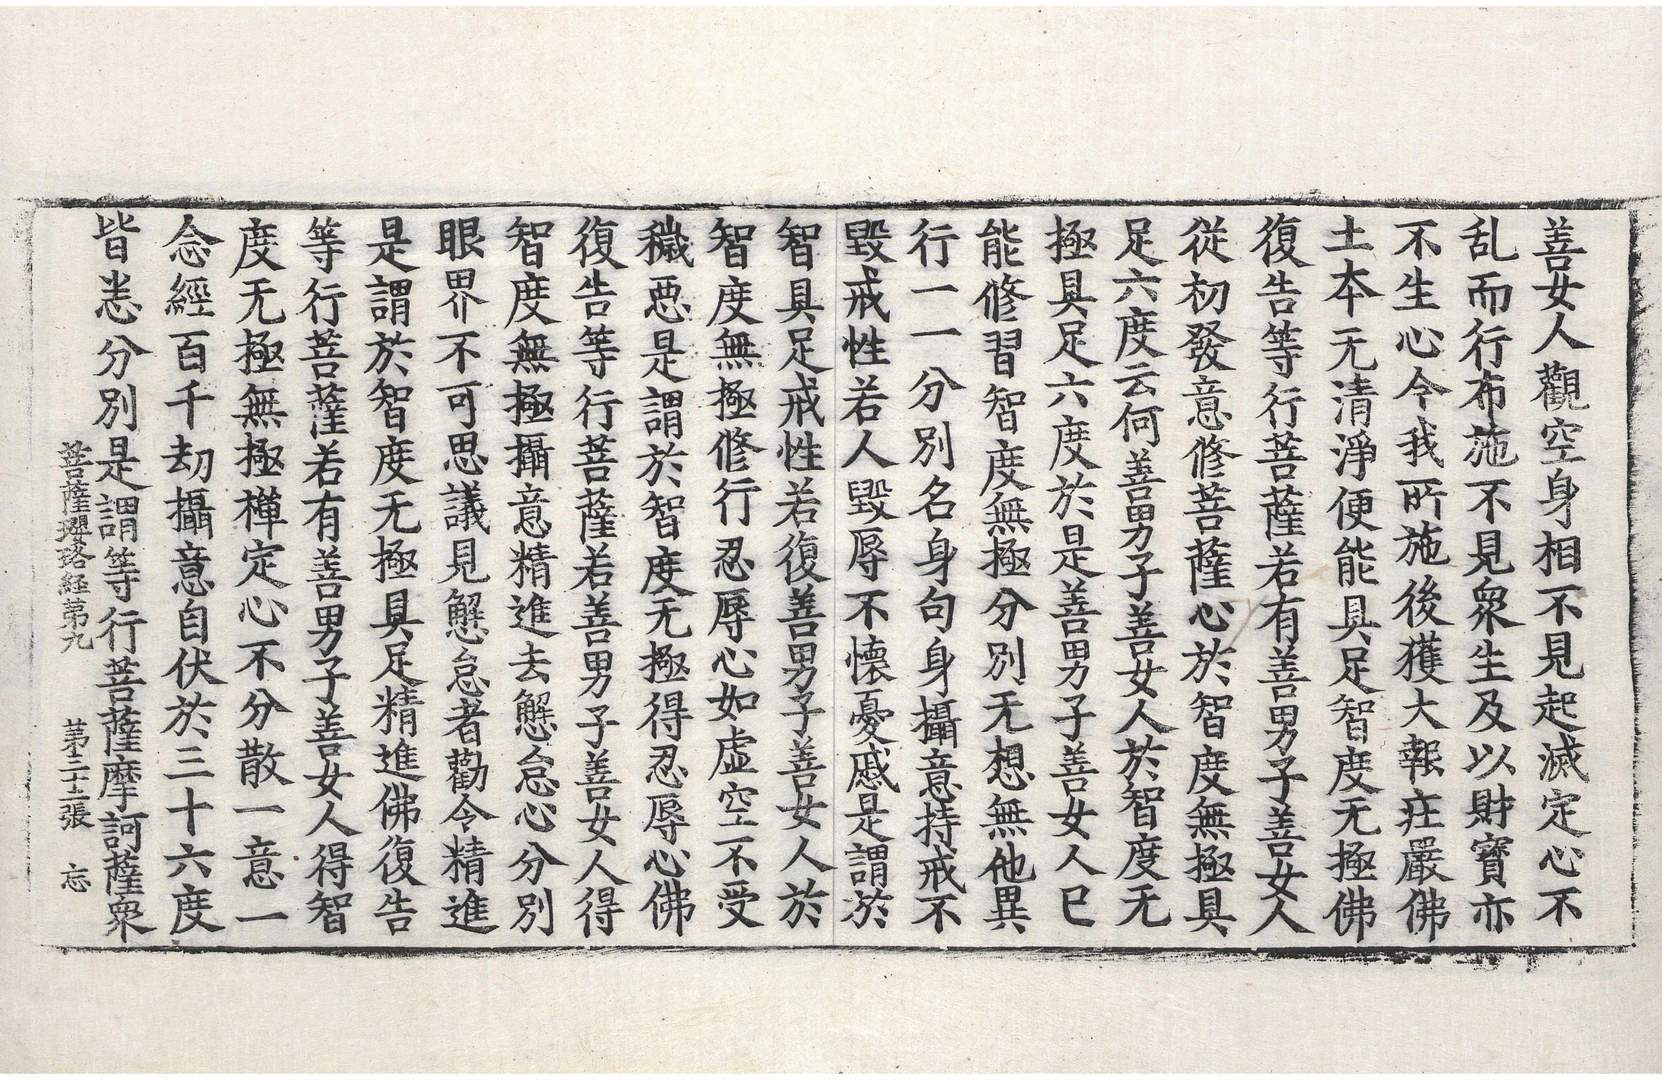 善女人觀空身相不見起滅定心不
乱而行布施不見衆生及以財寶亦
不生心今我所施後獲大報疘嚴佛
土本无清淨便能具足智度无極佛
復告等行菩薩若有善男子善女人
從初發意修菩薩心於智度無極具
足六度云何善男子善女人於智度无
極具足六度於是善男子善女人已
能修習智度無極分別无想無他異
行一一分別名身句身攝意持戒不
毀戒性若人毀辱不懷憂慼是謂於
智具足戒性若復善男子善女人於
智度無極修行忍辱心如虛空不受
穢恶是謂於智度无極得忍辱心佛
復告等行菩薩若善男子善女人得
智度無極攝意精進去懈怠心分別
眼界不可思議見懈怠者勸令精進
是謂於智度无極具足精進佛復告
等行菩薩若有善男子善女人得智
度无極無極禪定心不分散一意一
念經百千劫攝意自伏於三十六度
皆悉分別是謂等行菩薩摩訶薩衆
菩薩瓔珞經苐九 苐二十二張 忘